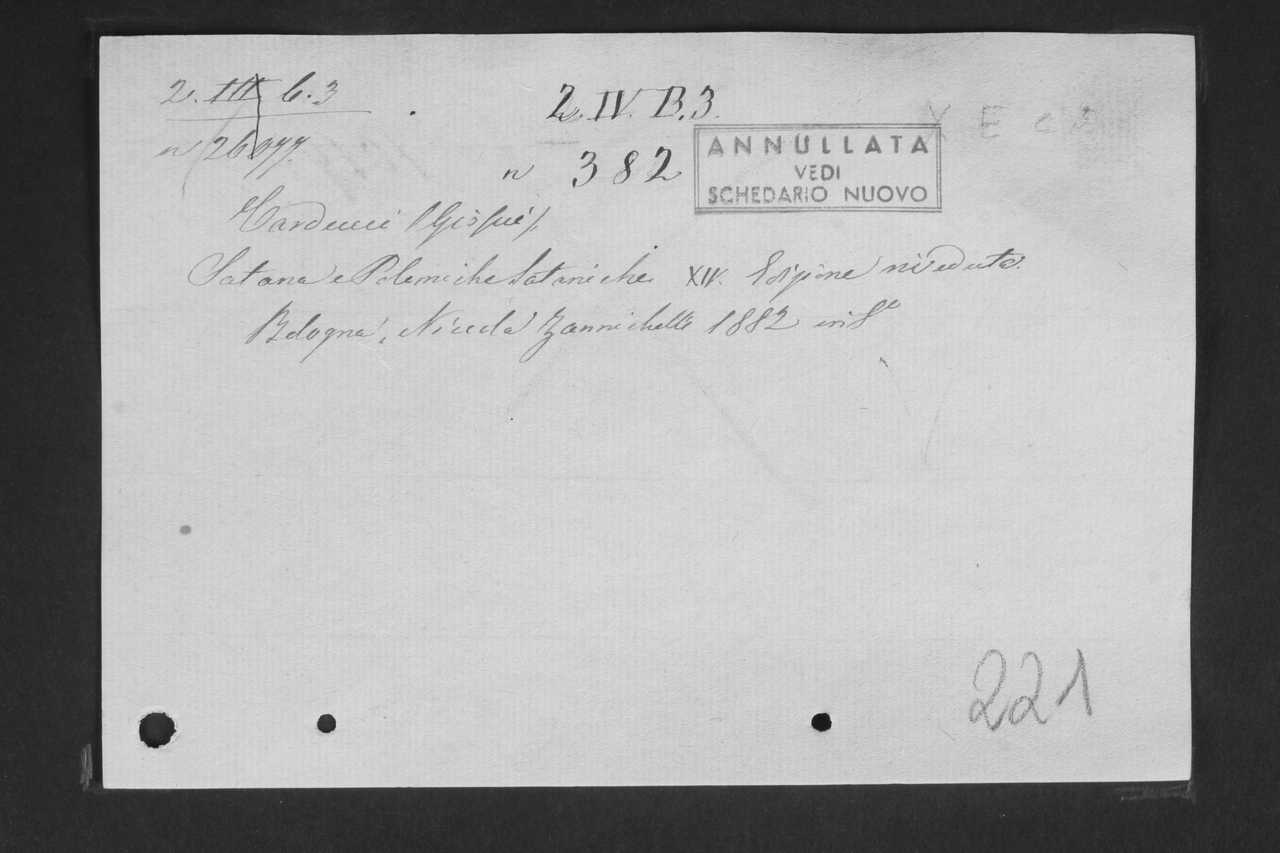 2. III 6.3
2. IV. B. 3.
n 26077.
n 382
ANNULLATA
VEDI
SCHEDARIO NUOVO
Carducci (Giosuè).
Satana e Polemiche Sataniche XIV. Edizione riveduta.
Bologna, Nicola Zannichelli 1882 in 8°
221